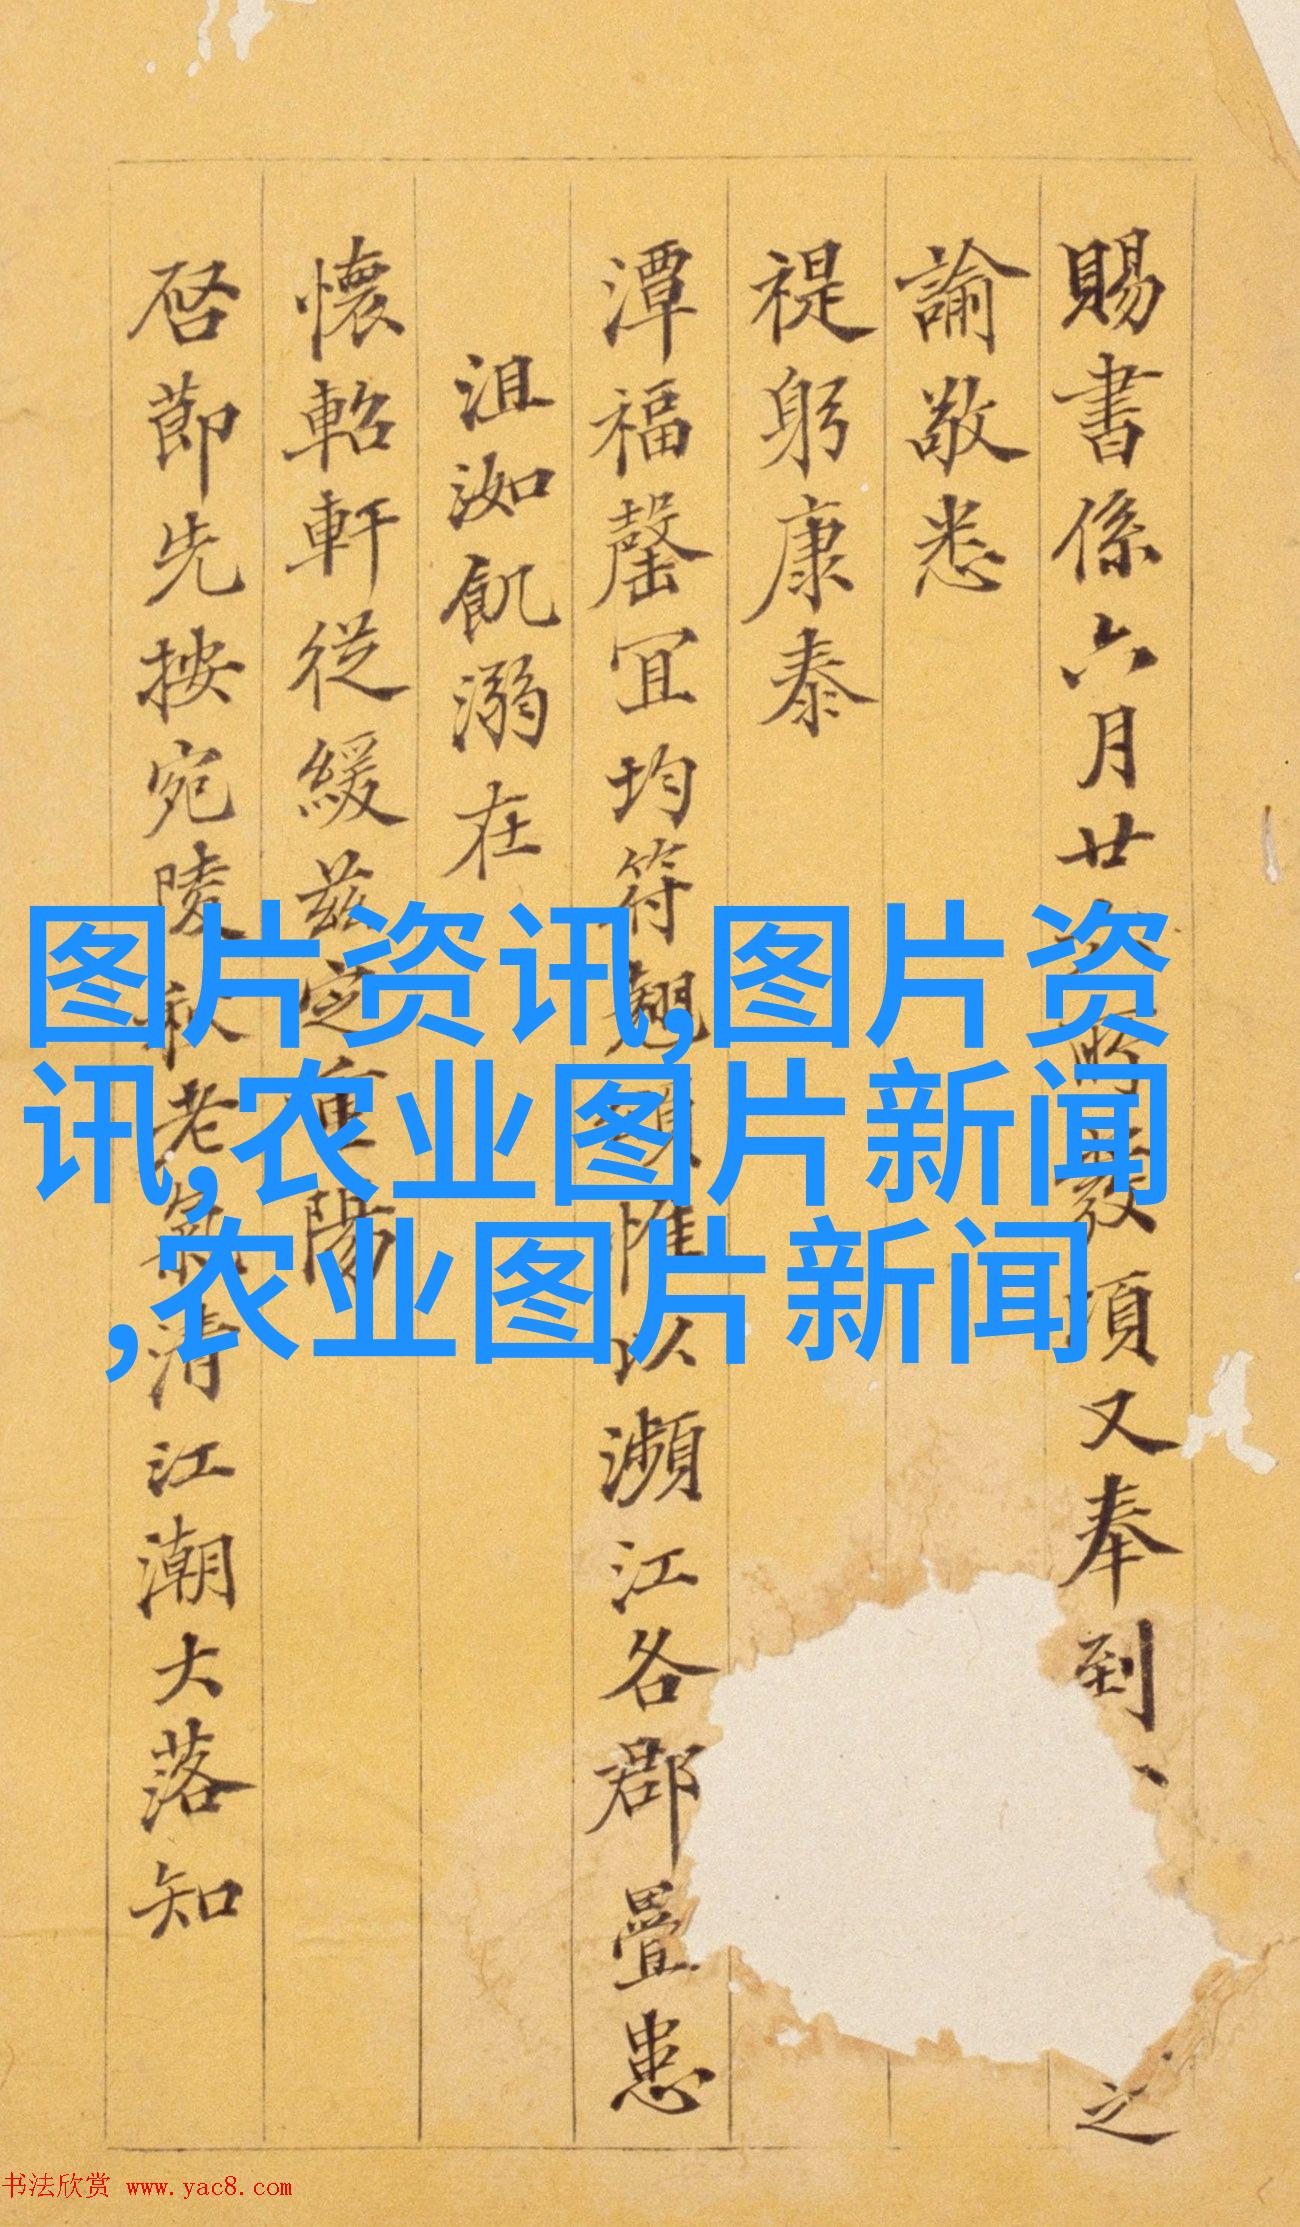 賜書係六月廿
發項又奉到
之
諭敬悉
禔躬康泰
潭福罄宜均符翹頌惟以瀕江各郡疊患
沮洳飢溺在
懷軺軒從緩茲定重陽
啓節先按宛陵秋老氣清江潮大落知
图片资讯,图片资
讯,农业图片新闻
,农业图片新闻
书法欣赏 www.yac8.com